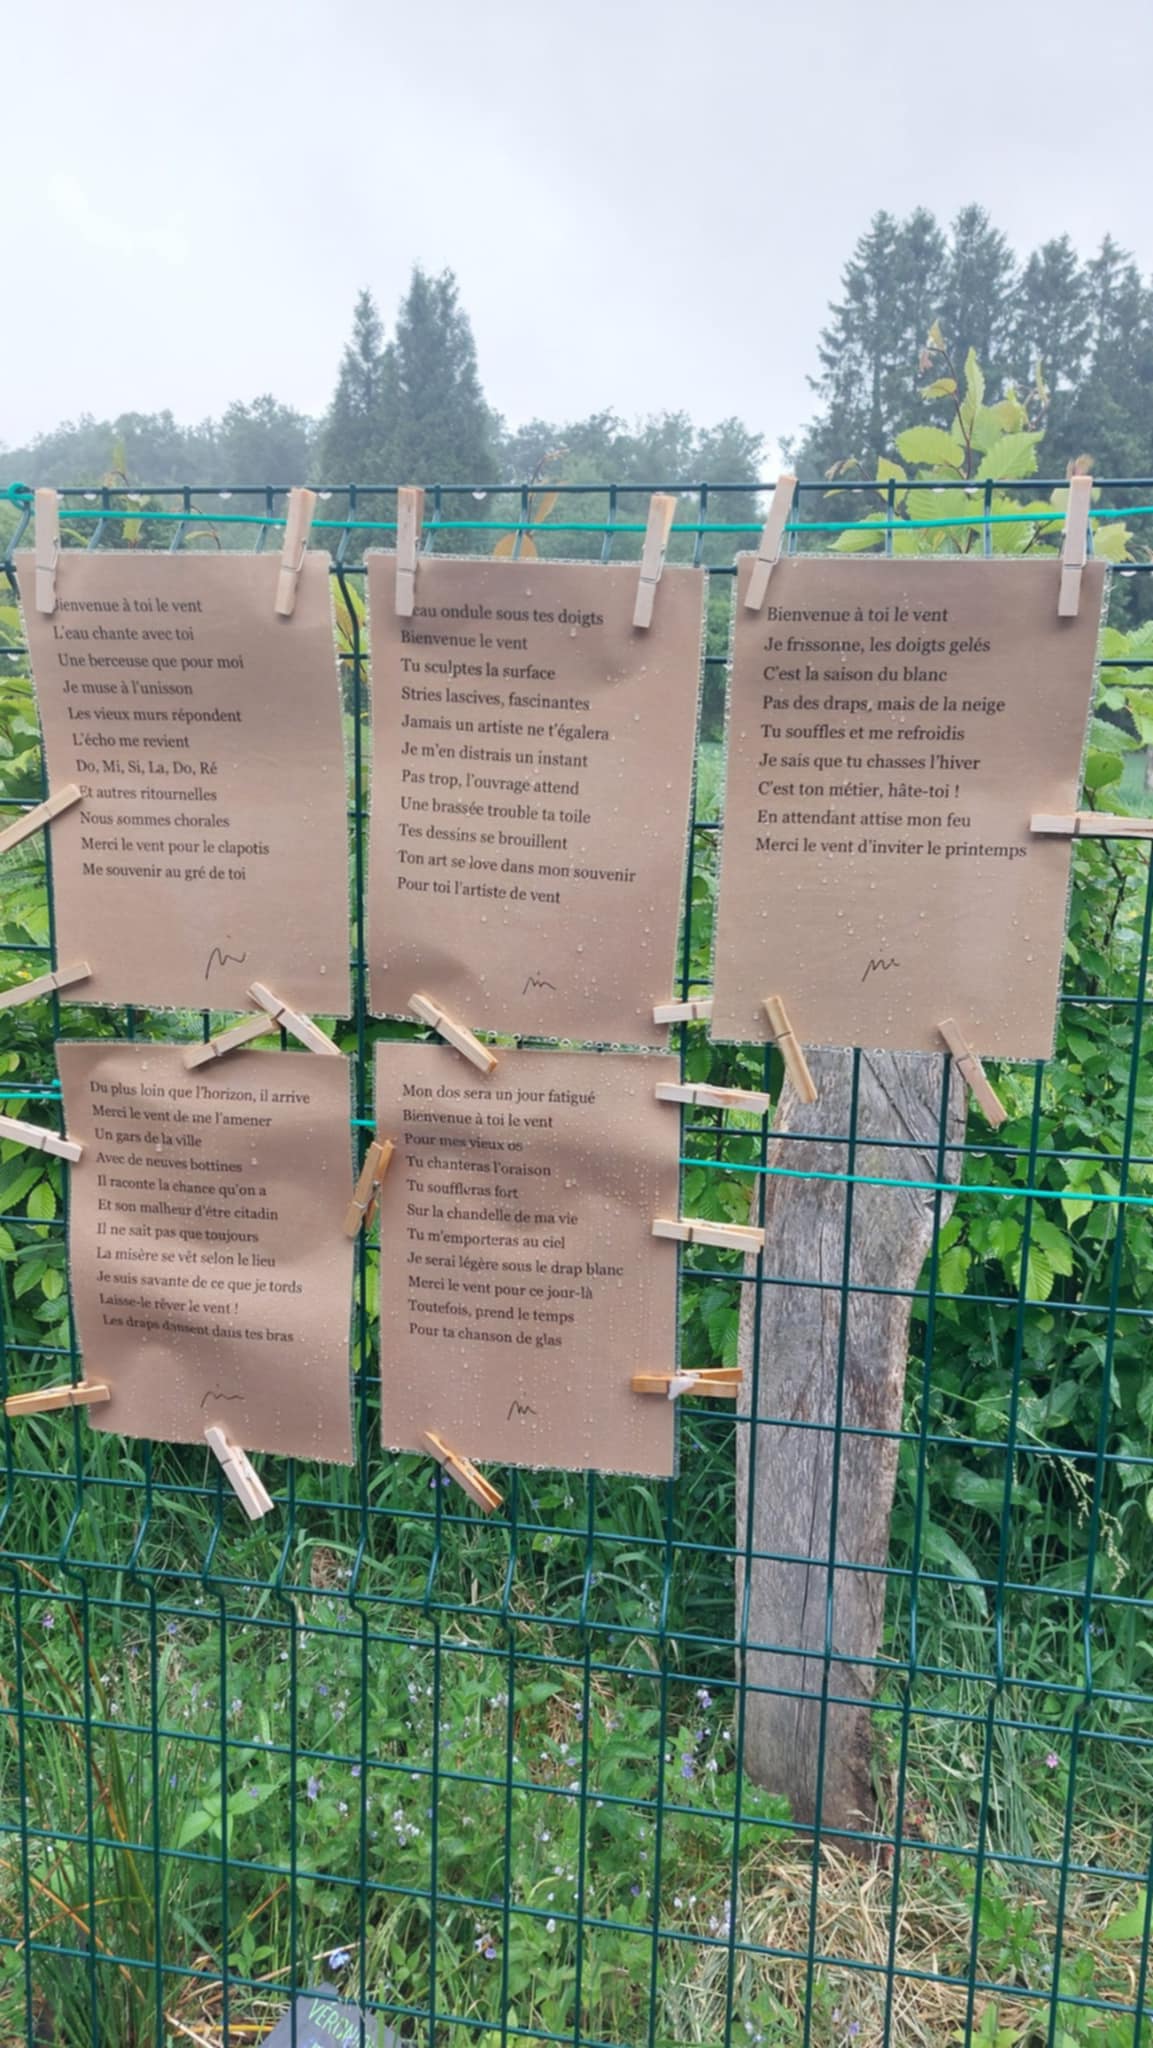 Bienvenue à toi le vent
L'eau chante avec toi
Une berceuse que pour moi
Je muse à l'unisson
Les vieux murs répondent
L'écho me revient
Do, Mi, Si, La, Do, Ré
Et autres ritournelles
Nous sommes chorales
Merci le vent pour le clapotis
Me souvenir au gré de toi
L'eau ondule sous tes doigts
Bienvenue le vent
Tu sculptes la surface
Stries lascives, fascinantes
Jamais un artiste ne t'égalera
Je m'en distrais un instant
Pas trop, l'ouvrage attend
Une brassée trouble ta toile
Tes dessins se brouillent
Ton art se love dans mon souvenir
Pour toi l'artiste de vent
Bienvenue à toi le vent
Je frissonne, les doigts gelés
C'est la saison du blanc
Pas des draps, mais de la neige
Tu souffles et me refroidis
Je sais que tu chasses l'hiver
C'est ton métier, hâte-toi !
En attendant attise mon feu
Merci le vent d'inviter le printemps
Du plus loin que l'horizon, il arrive
Merci le vent de me l'amener
Un gars de la ville
Avec de neuves bottines
Il raconte la chance qu'on a
Et son malheur d'être citadin
Il ne sait pas que toujours
La misère se vêt selon le lieu
Je suis savante de ce que je tords
Laisse-le rêver le vent !
Les draps dansent dans tes bras
Mon dos sera un jour fatigué
Bienvenue à toi le vent
Pour mes vieux os
Tu chanteras l'oraison
Tu souffleras fort
Sur la chandelle de ma vie
Tu m'emporteras au ciel
Je serai légère sous le drap blanc
Merci le vent pour ce jour-là
Toutefois, prend le temps
Pour ta chanson de glas